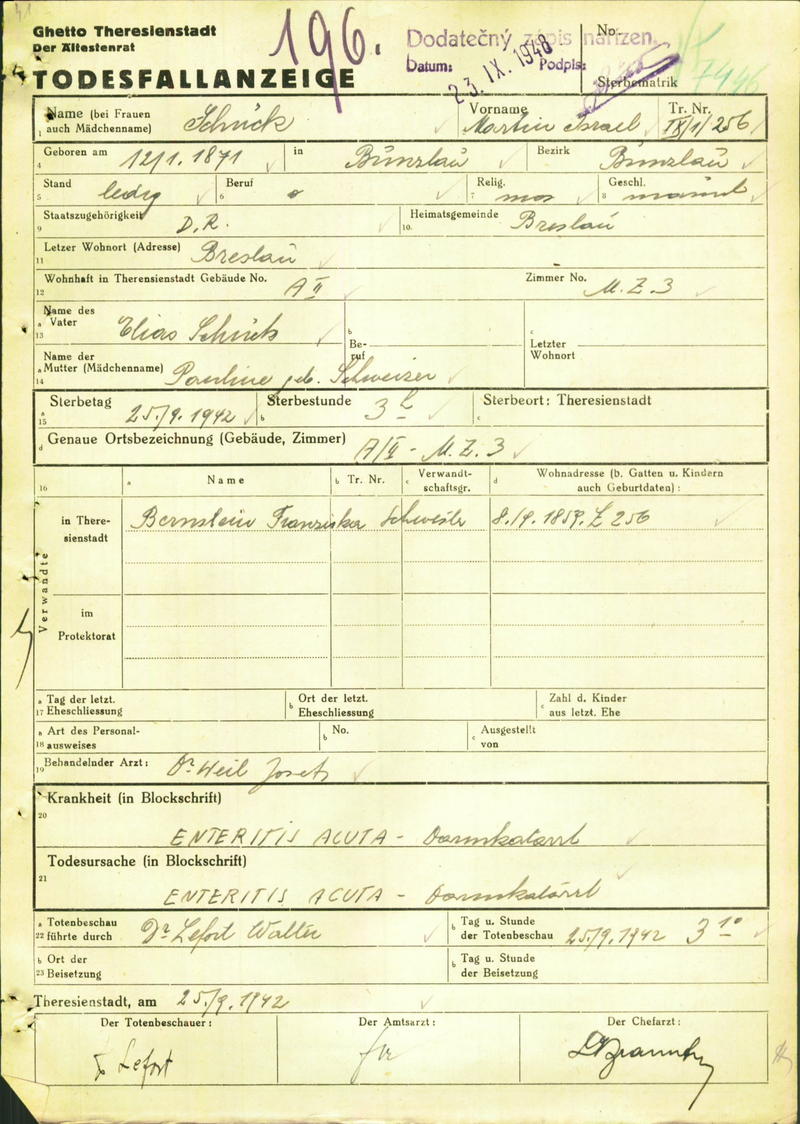 41
Ghetto Theresienstadt
Der Ältestenrat
TODESFALLANZEIGE
196.
Dodatečný zápis nařízen.
Datum: 23. IX. 1948 Podpis:
No.
Sterbematrik
7446
Name (bei Frauen auch Mädchenname) Schück
1
Vorname Martin Israel
Tr. Nr. IX/1/256
Geboren am 12/1. 1871 in Bunzlau Bezirk Bunzlau
4
Stand ledig Beruf o Relig. mos Geschl. männl
5 6 7 8
Staatszugehörigkeit D.R. Heimatsgemeinde Breslau
9 10.
Letzer Wohnort (Adresse) Breslau
11
Wohnhaft in Therensienstadt Gebäude No. A II Zimmer No. M.Z.3
12
Name des
a Vater Elias Schück
13
b Be-ruf
c Letzter Wohnort
Name der
a Mutter (Mädchenname) Pauline geb. Schweizer
14
a Sterbetag 25./9. 1942 b Sterbestunde 3 h c Sterbeort: Theresienstadt
15
d Genaue Ortsbezeichnung (Gebäude, Zimmer) A/II - M.Z.3
16 a Name b Tr. Nr. c Verwandt-schaftsgr. d Wohnadresse (b. Gatten u. Kindern auch Geburtdaten) :
Verwandte
in There-sienstadt Bernstein Franziska Schwester 8./9. 1859. L 256
im
Protektorat
a Tag der letzt. b Ort der letzt. c Zahl d. Kinder
17 Eheschliessung Eheschliessung aus letzt. Ehe
a Art des Personal- b No. c Ausgestellt
18 ausweises von
19 Behandelnder Arzt: Dr Weil Josef
Krankheit (in Blockschrift)
20
ENTERITIS ACUTA - Darmkatarrh
Todesursache (in Blockschrift)
21
ENTERITIS ACUTA - Darmkatarrh
a Totenbeschau b Tag u. Stunde
22 führte durch Dr Lefort Walter der Totenbeschau 25/9. 1942 3 10
b Ort der b Tag u. Stunde
23 Beisetzung der Beisetzung
Theresienstadt, am 25./9. 1942
Der Totenbeschauer: Der Amtsarzt: Der Chefarzt:
Lefort